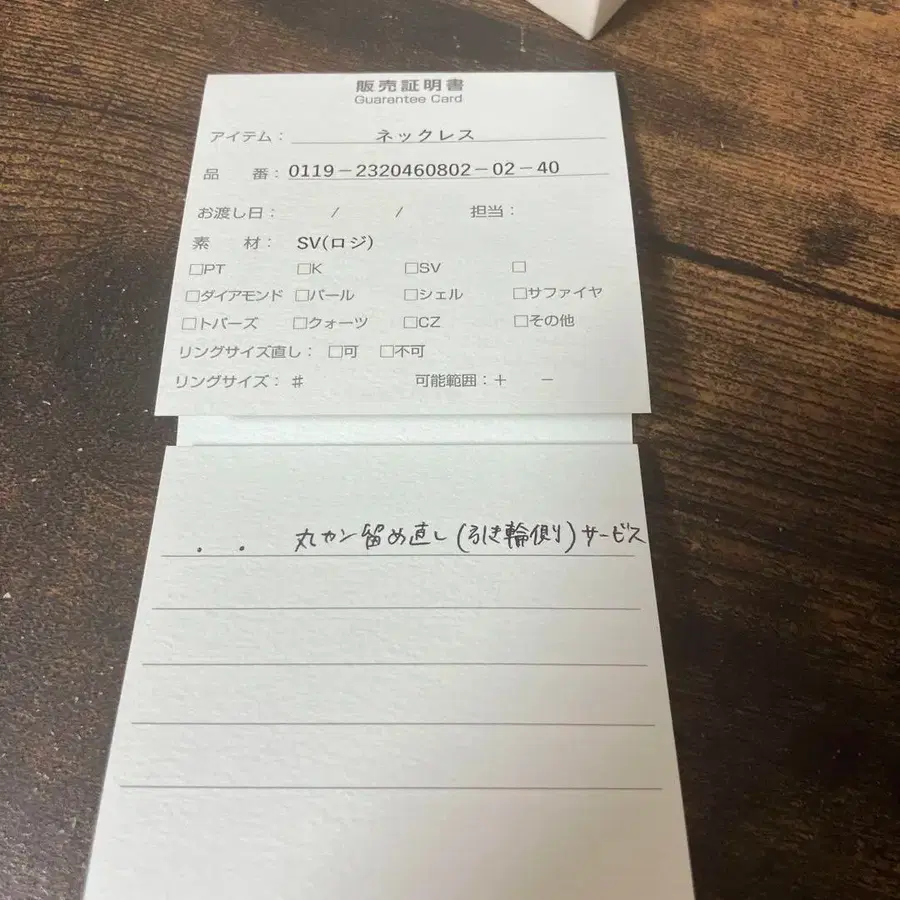 販売証明書
Guarantee Card
アイテム： ネックレス
品　番：0119－2320460802－02－40
お渡し日：　/　/　担当：
素　材：　SV(ロジ)
□PT　□K　□SV　□
□ダイアモンド　□パール　□シェル　□サファイヤ
□トパーズ　□クォーツ　□CZ　□その他
リングサイズ直し：　□可　□不可
リングサイズ：＃　可能範囲：＋　－
. . 丸カン留め直し(引き輪側)サービス